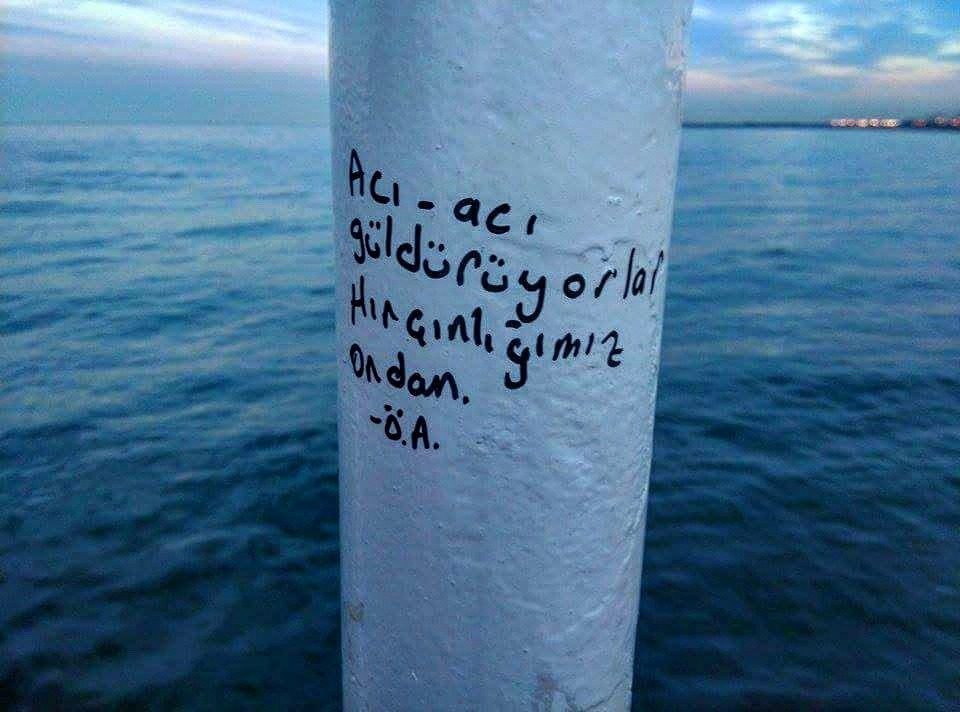 Acı-acı
güldürüyorlar
Hırçınlığımız
ondan.
-Ö.A.